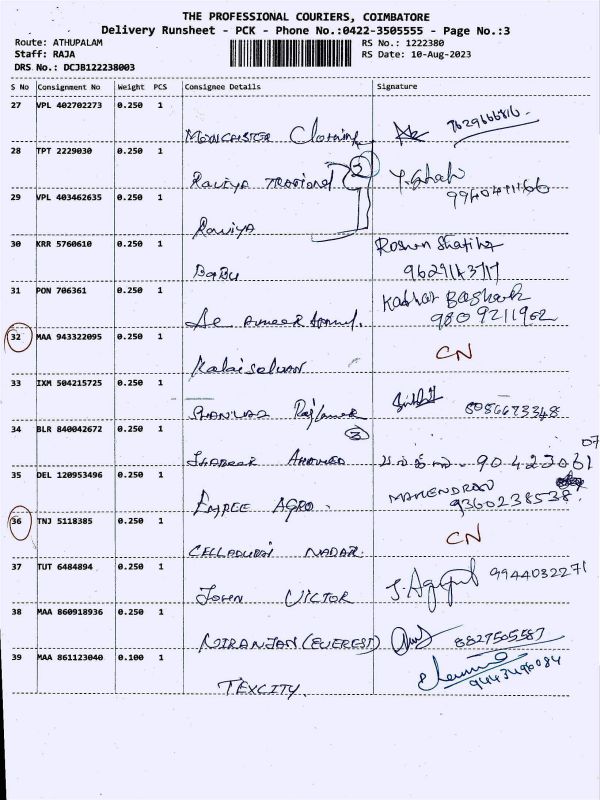 THE PROFESSIONAL COURIERS, COIMBATORE
Delivery Runsheet - PCK - Phone No.:0422-3505555 - Page No.:3
Route: ATHUPALAM RS No.: 1222380
Staff: RAJA RS Date: 10-Aug-2023
DRS No.: DCJB122238003
S No Consignment No Weight PCS Consignee Details Signature
27 VPL 402702273 0.250 1
MANCHESTER Clothing 7629666816
28 TPT 2229030 0.250 1
Raviya 2
29 VPL 403462635 0.250 1
Raviya
30 KRR 5760610 0.250 1 Roshen
BABU
31 PON 706361 0.250 1
9809211962
32 MAA 943322095 0.250 1
Kalaiselvan CN
33 IXM 504215725 0.250 1
8086673348
34 BLR 840042672 0.250 1 3
AHAMED
35 DEL 120953496 0.250 1 MAHENDRAN
EMPEE AGRO. 9360238538
36 TNJ 5118385 0.250 1
CELLADURAI NADAR CN
37 TUT 6484894 0.250 1
JOHN VICTOR 9944032271
38 MAA 860918936 0.250 1
NIRANJAN (EVEREST) 8827505587
39 MAA 861123040 0.100 1
TEXCITY. 9443496084